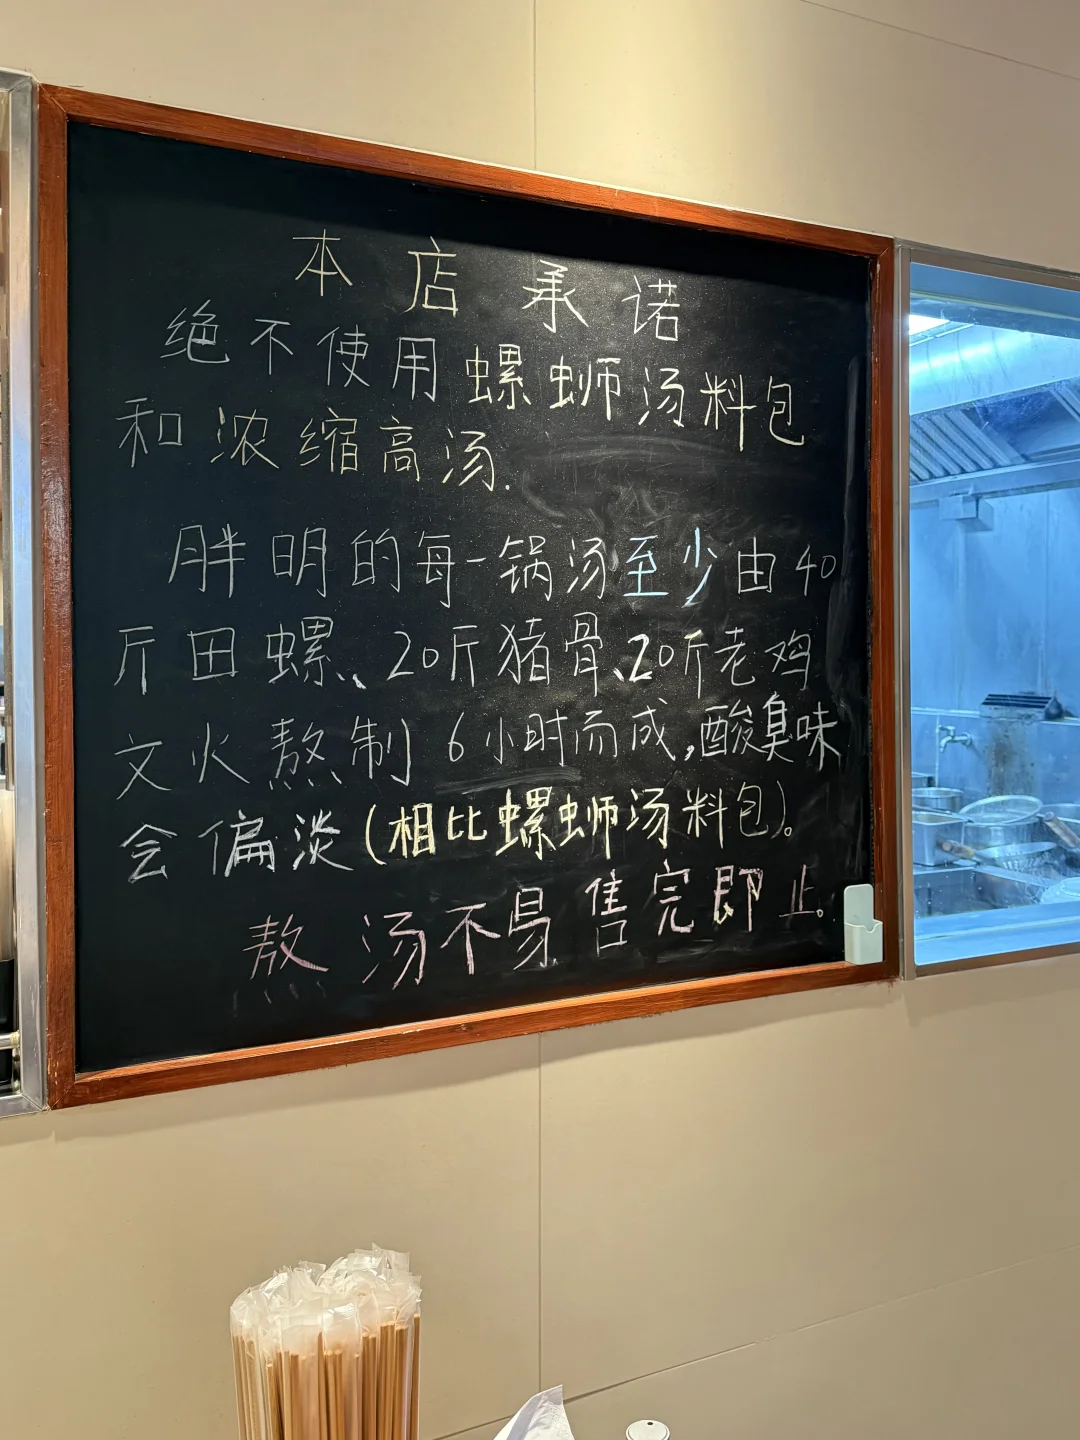 本店承诺
绝不使用螺蛳汤料包
和浓缩高汤.
胖明的每一锅汤至少由40
斤田螺、20斤猪骨、20斤老鸡
文火熬制6小时而成,酸臭味
会偏淡(相比螺蛳汤料包)。
熬汤不易售完即止。